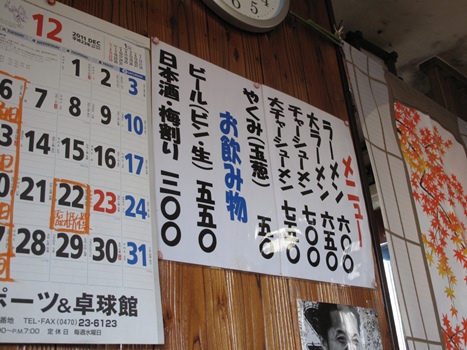 メニュー
ラーメン 六〇〇
大ラーメン 六五〇
チャーシューメン 七〇〇
大チャーシューメン 七五〇
やくみ(玉葱) 五〇
お飲み物
ビール(ビン・生) 五五〇
日本酒・梅割り 三〇〇
12 2011 DEC
1 2 3
6 7 8 9 10
14 15 16 17
21 22 23 24
27 28 29 30 31
ポーツ&卓球館
番地 TEL・FAX (0470) 23-6123
P.M.7:00 定休日 毎週水曜日